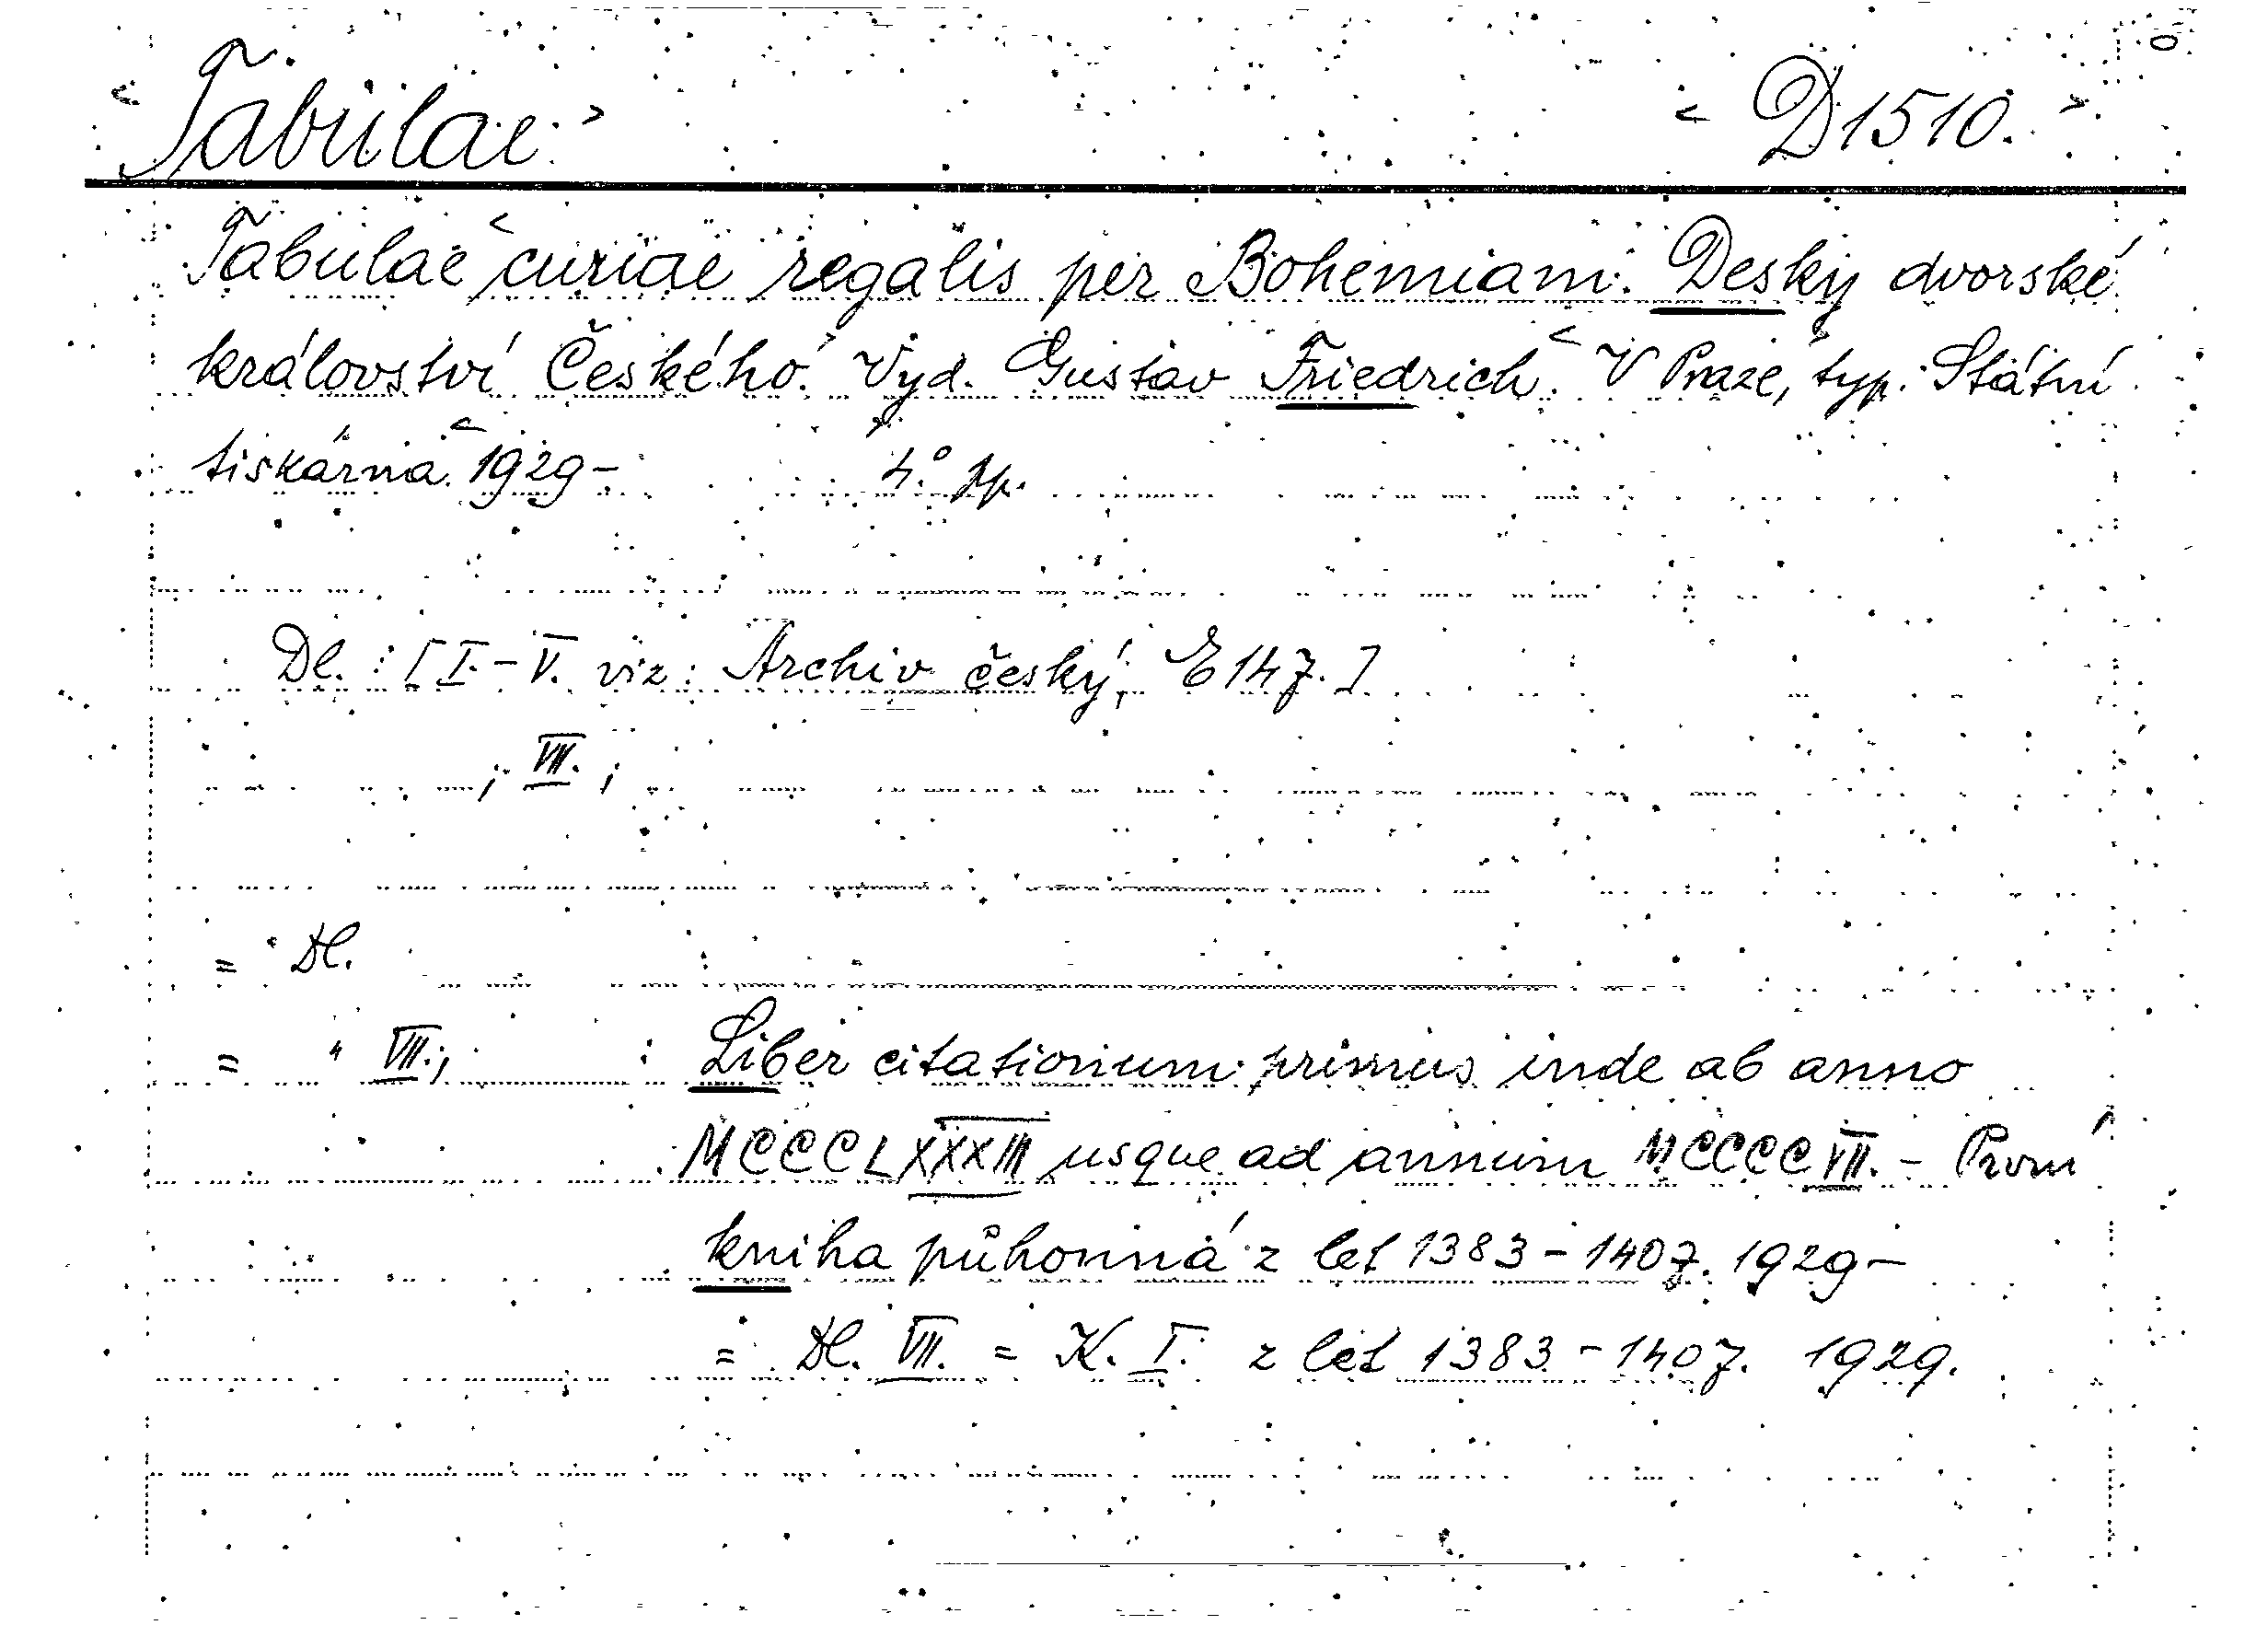 Tabulae D1510.
Tabulae curiae regalis per Bohemiam. Desky dvorské
království Českého. Vyd. Gustav Friedrich. V Praze, typ. Státní
tiskárna 1929- 4°
Dl. : [I.-V. viz: Archiv český, E147.]
; VII. ;
= Dl.
= " VII.; : Liber citationum primus inde ab anno
MCCCLXXXIII usque ad annum MCCCCVII. - První
kniha půhonná z let 1383-1407. 1929-
= Dl. VII. = K. I. z let 1383-1407. 1929.